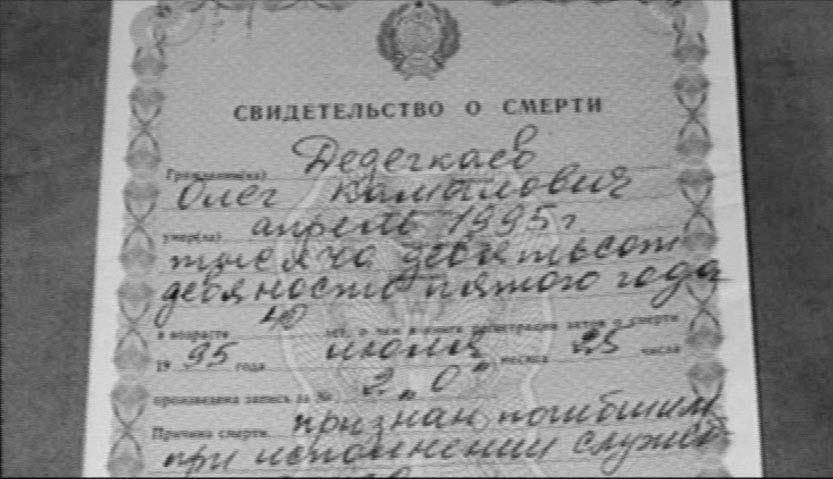 СВИДЕТЕЛЬСТВО О СМЕРТИ
Гражданин(ка) Дедегкаев
Олег Камылович
умер(ла) апрель 1995 г.
тысяча девятьсот
девяносто пятого года
в возрасте 40 лет, о чем в книге регистрации актов о смерти
19 95 года июля месяца 25 числа
произведена запись за №
Причина смерти признан погибшим
при исполнении